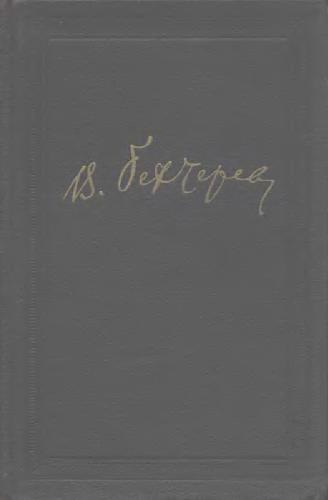 В. Бехтерев